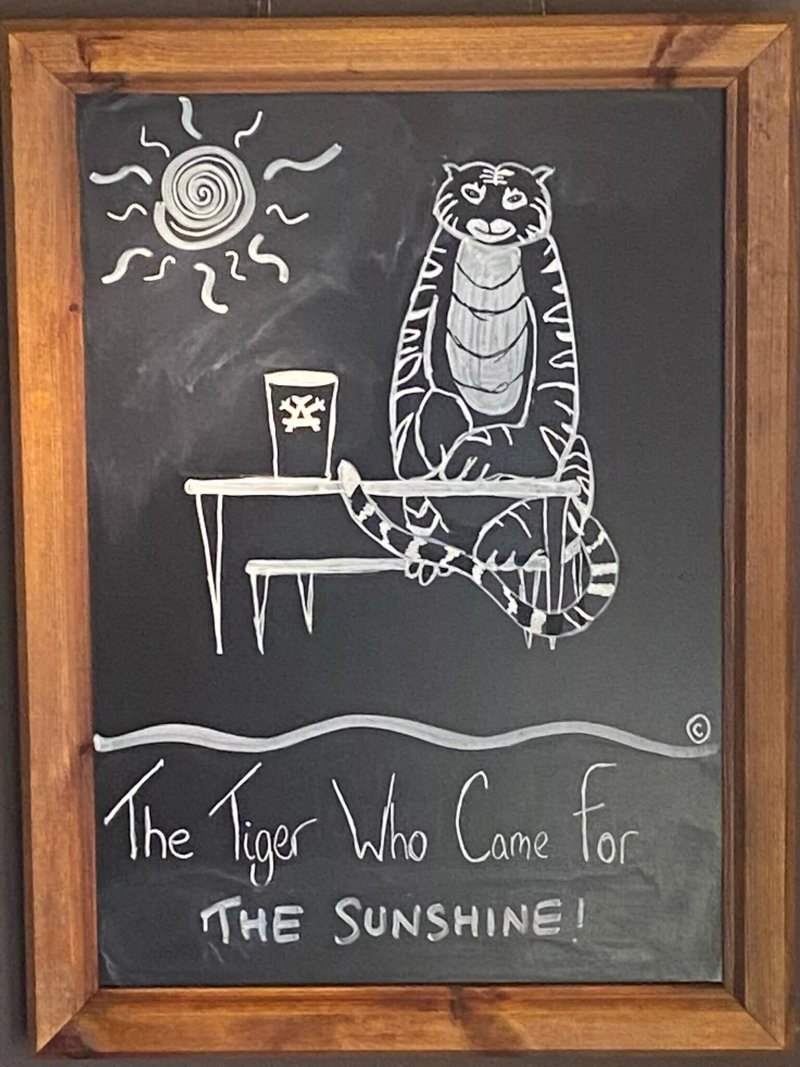 ©
The Tiger Who Came For
THE SUNSHINE!